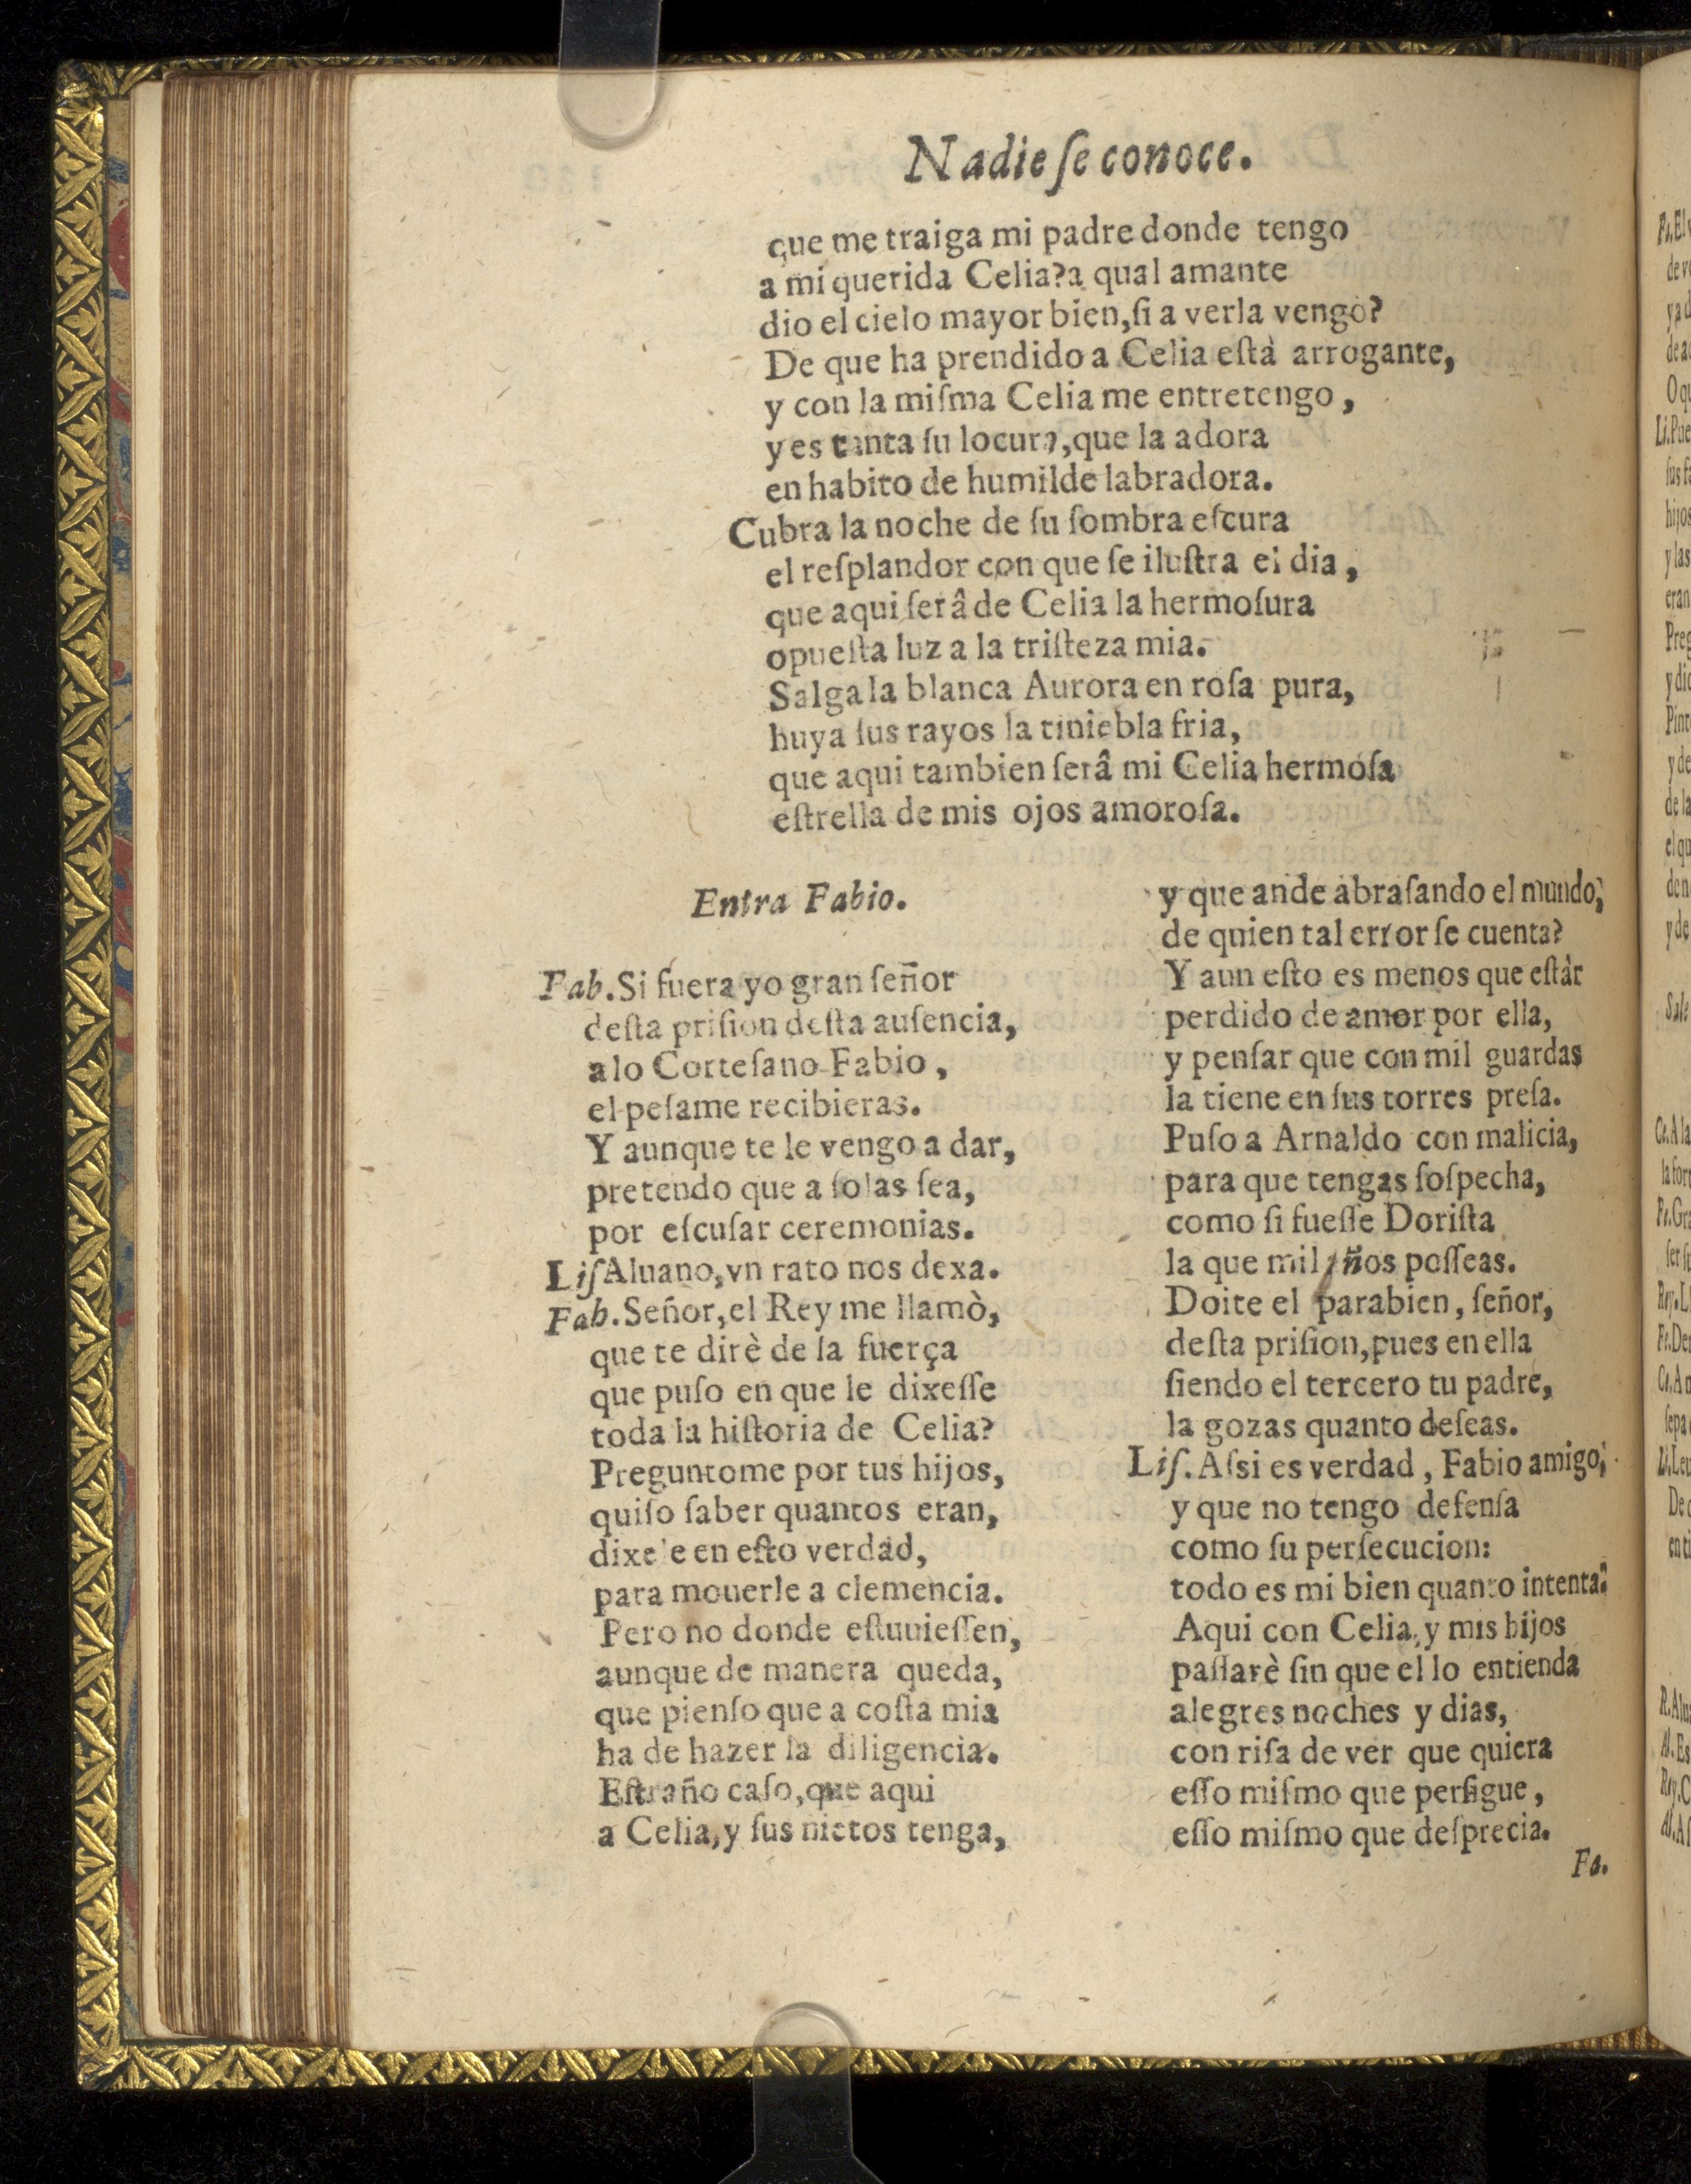 Nadie ſe conoce.
que me traiga mi padre donde tengo
a mi querida Celia?a qual amante
dio el cielo mayor bien,ſi a verla vengo?
De que ha prendido a Celia eſtà arrogante,
y con la miſma Celia me entretengo,
y es tanta ſu locura,que la adora
en habito de humilde labradora.
Cubra la noche de ſu ſombra eſcura
el reſplandor con que ſe iluſtra el dia,
que aqui ſerâ de Celia la hermoſura
opueſta luz a la triſteza mia.
Salga la blanca Aurora en roſa pura,
huya ſus rayos la tiniebla fria,
que aqui tambien ſerâ mi Celia hermoſa
eſtrella de mis ojos amoroſa.
Entra Fabio.
Fab.Si fuera yo gran ſeñor
deſta priſion deſta auſencia,
a lo Corteſano Fabio,
el peſame recibieras.
Y aunque te le vengo a dar,
pretendo que a ſolas ſea,
por eſcuſar ceremonias.
Liſ Aluano,vn rato nos dexa.
Fab.Señor,el Rey me llamò,
que te dirè de la fuerça
que puſo en que le dixeſſe
toda la hiſtoria de Celia?
Preguntome por tus hijos,
quiſo ſaber quantos eran,
dixele en eſto verdad,
para mouerle a clemencia.
Pero no donde eſtuuieſſen,
aunque de manera queda,
que pienſo que a coſta mia
ha de hazer la diligencia.
Eſtraño caſo,que aqui
a Celia,y ſus nietos tenga,
y que ande abraſando el mundo,
de quien tal error ſe cuenta?
Y aun eſto es menos que eſtàr
perdido de amor por ella,
y penſar que con mil guardas
la tiene en ſus torres preſa.
Puſo a Arnaldo con malicia,
para que tengas ſoſpecha,
como ſi fueſſe Doriſta
la que mil años poſſeas.
Doite el parabien, ſeñor,
deſta priſion,pues en ella
ſiendo el tercero tu padre,
la gozas quanto deſeas.
Liſ. Aſsi es verdad, Fabio amigo,
y que no tengo defenſa
como ſu perſecucion:
todo es mi bien quanto intenta:
Aqui con Celia,y mis hijos
paſſarè ſin que el lo entienda
alegres noches y dias,
con riſa de ver que quiera
eſſo miſmo que perſigue,
eſſo miſmo que deſprecia.
Fa.